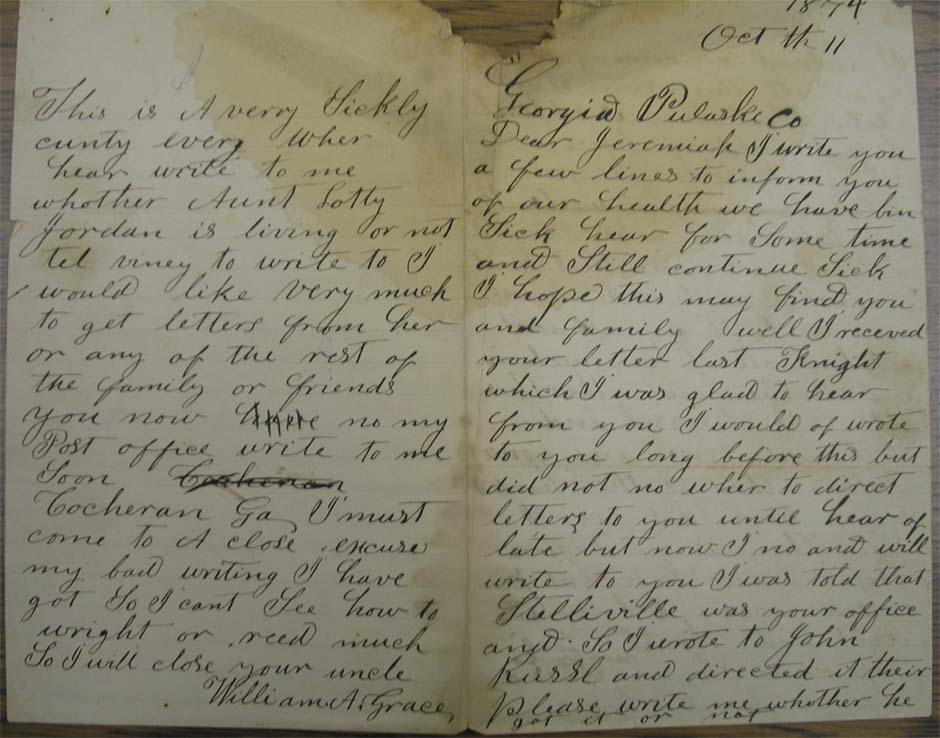 1874
Oct th 11
Georgia Pulaske Co
Dear Jeremiah I write you
a few lines to inform you
of our health we have bin
Sick hear for Some time
and Still continue Sick
I hope this may find you
and family well I receved
your letter last Knight
which I was glad to hear
from you I would of wrote
to you long before this but
did not no wher to direct
letters to you until hear of
late but now I no and will
write to you I was told that
Stelliville was your office
and So I wrote to John
Russl and directed it their
Please write me whother he
got it or not
This is A verry Sickly
cunty every wher
hear write to me
whother Aunt Lotty
Jordan is living or not
tel viney to write to I
would like very much
to get letters from her
or any of the rest of
the family or friends
you now no my
Post office write to me
Soon
Cocheran Ga I must
come to A close excuse
my bad writing I have
got So I cant See how to
wright or reed much
So I will close your uncle
William A. Grace